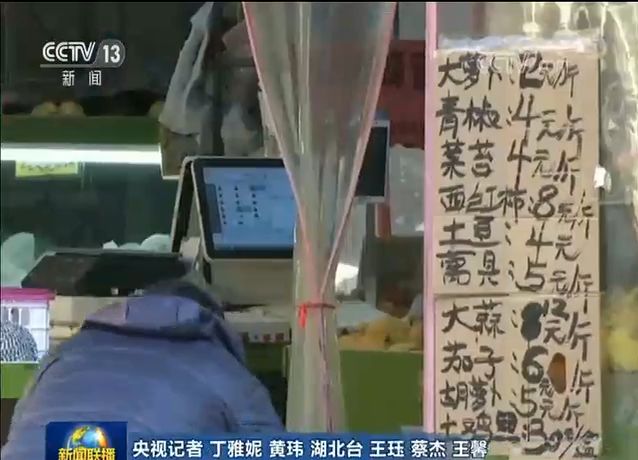 CCTV 13
新闻
大萝卜:2元/斤
青椒:4元/斤
菜苔 4元/斤
西红柿:8元/斤
土豆:4元
莴具:5元/斤
大蒜:12元/斤
茄子:6元 斤
胡萝卜:5元/斤
土鸡
央视记者 丁雅妮 黄玮 湖北台 王珏 蔡杰 王馨
新闻联播